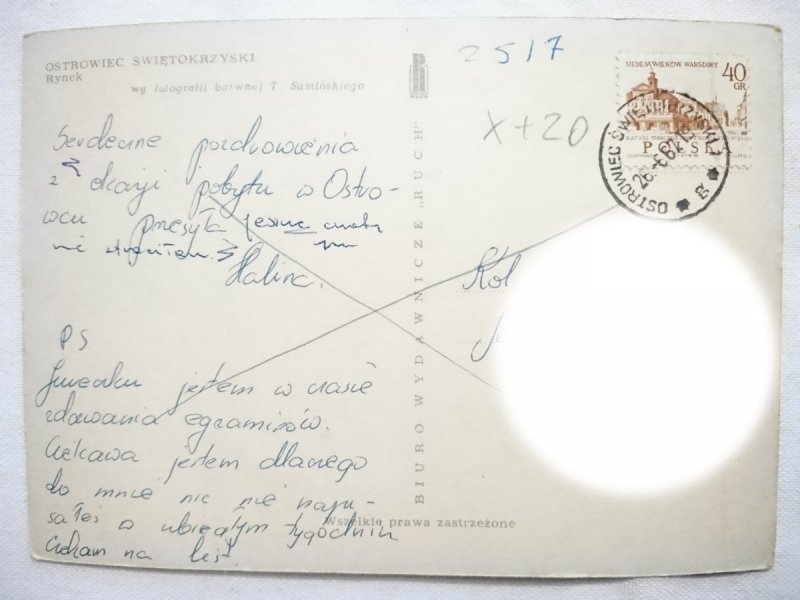 OSTROWIEC ŚWIĘTOKRZYSKI
Rynek
wg fotografii barwnej T. Sumińskiego
2517
SIEDEM WIEKÓW WARSZAWY
40
GR
x + 20
POLSKA
OSTROWIEC ŚWIĘTOKRZYSKI 3
Serdeczne pozdrowienia
z okazji pobytu w Ostro-
wcu przesyła
nie
Halina.
Kol
BIURO WYDAWNICZE „RUCH"
PS
jestem w czasie
zdawania egzaminów.
Ciekawa jestem dlaczego
do mnie nic nie napi-
sałeś w ubiegłym tygodniu
Czekam na list
Wszelkie prawa zastrzeżone